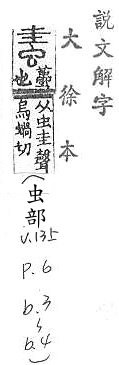 說文解字
大徐本
蠆也从虫圭聲
烏蝸切
(虫部
V.135
P.6
b.3
~
b.4)